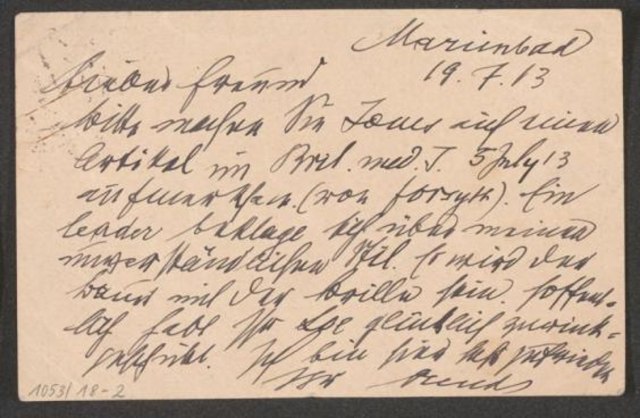 Marienbad
19.7.13
Lieber Freund
bitte machen Sie Jones auf einen
Artikel im Brit. med. J. 5 July 13
aufmerksam. (von Forsyth). Ein
leader beklagt sich über meinen
unverständlichen Stil. Es wird der
mit der Brille sein. Hoffent-
lich habe Sie glücklich zurück-
geführt. Ich bin hier sehr zufrieden
Ihr Freud
1053/18-2